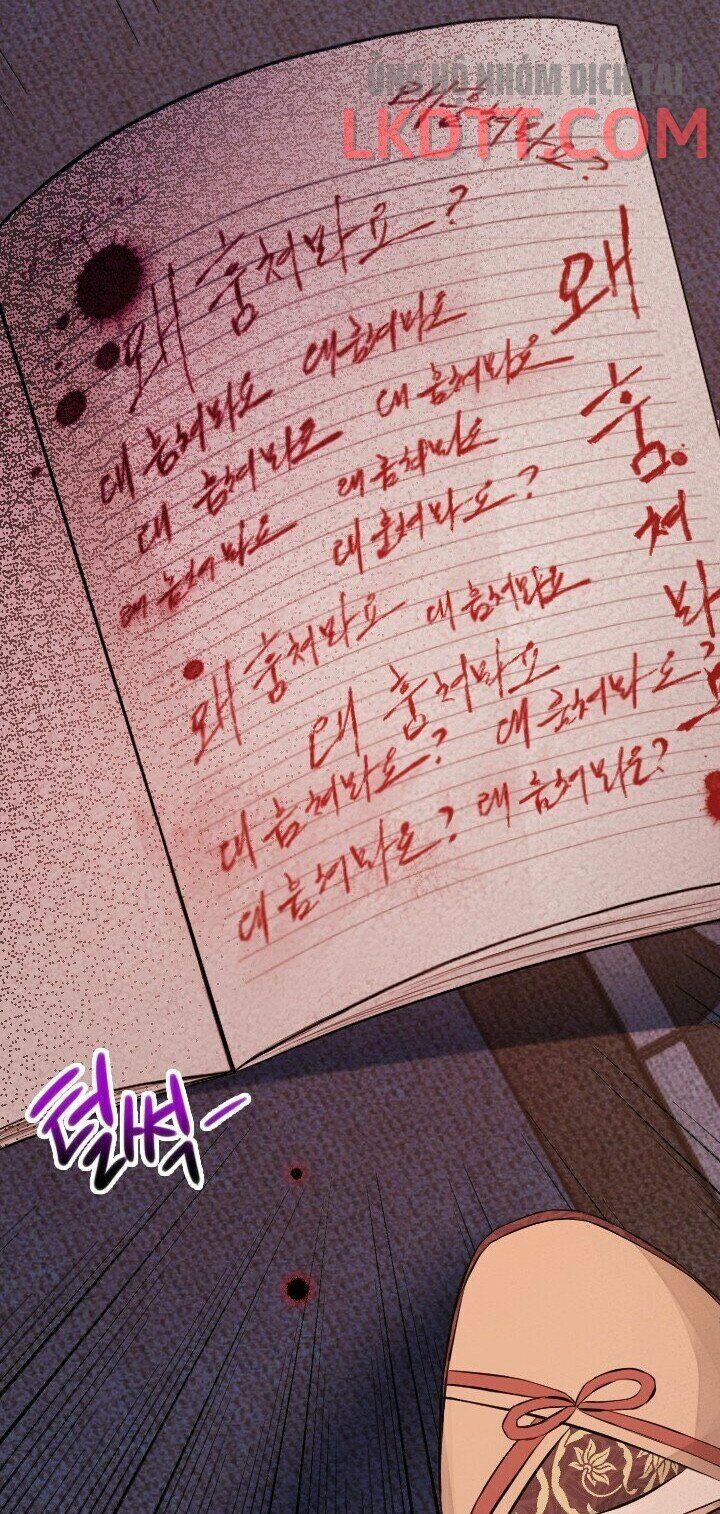 ỦNG HỘ NHÓM DỊCH TẠI
LKDTT.COM
왜 훔쳐봐요?
왜 훔쳐봐요
왜 훔쳐봐요
왜 훔쳐봐요
왜 훔쳐봐요
왜 훔쳐봐요
왜 훔쳐봐요
왜 훔쳐봐요?
왜 훔쳐봐요
왜 훔쳐봐요
왜 훔쳐봐요
왜 훔쳐봐요?
왜 훔쳐봐요?
왜 훔쳐봐요?
왜 훔쳐봐요?
왜 훔쳐봐요
털썩